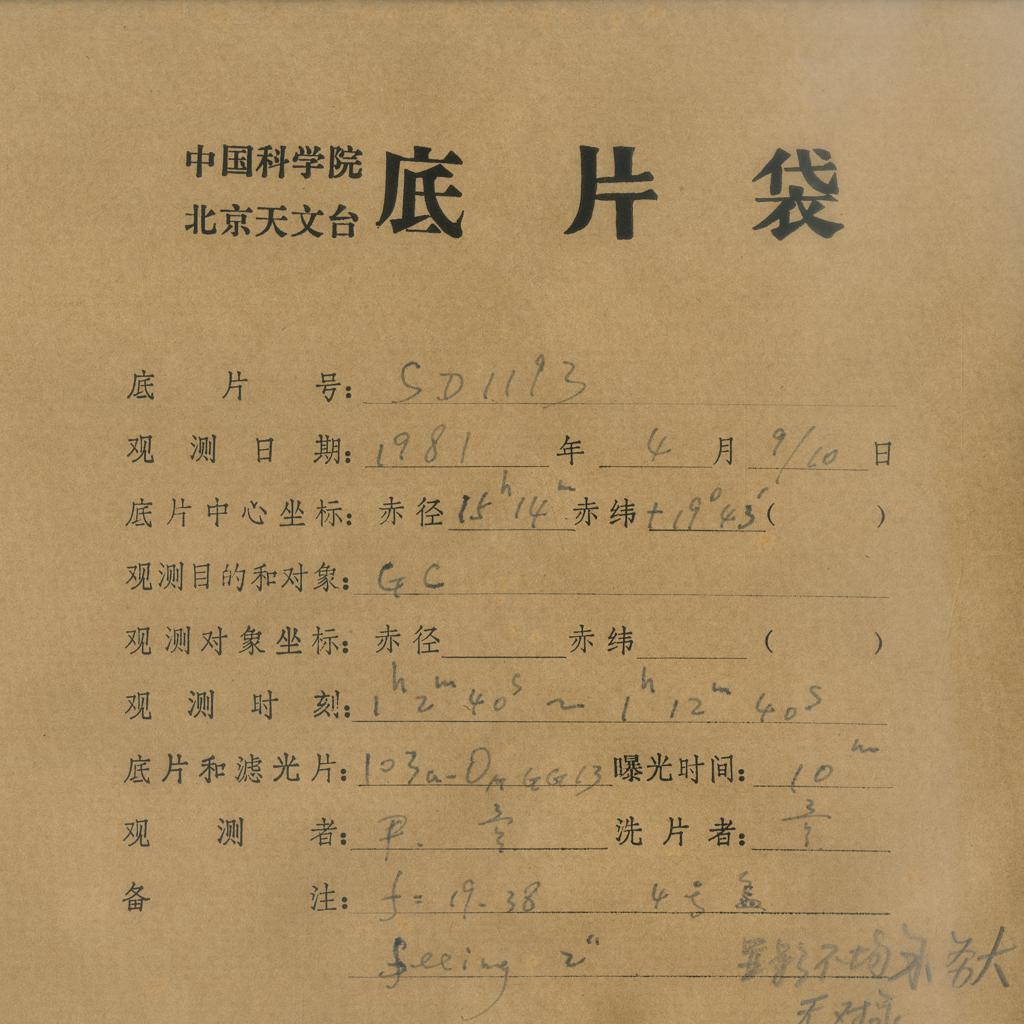 中国科学院
北京天文台 底片袋
底片号: SD1193
观测日期: 1981年4月9/10日
底片中心坐标: 赤径 15h14m 赤纬 +19°43′( )
观测目的和对象: GC
观测对象坐标: 赤径 赤纬 ( )
观测时刻: 1h2m40s ~ 1h12m40s
底片和滤光片: 103a-O GG13 曝光时间: 10m
观测者: 洗片者:
备注: f=19.38 4号盒
seeing 2"
不均 大